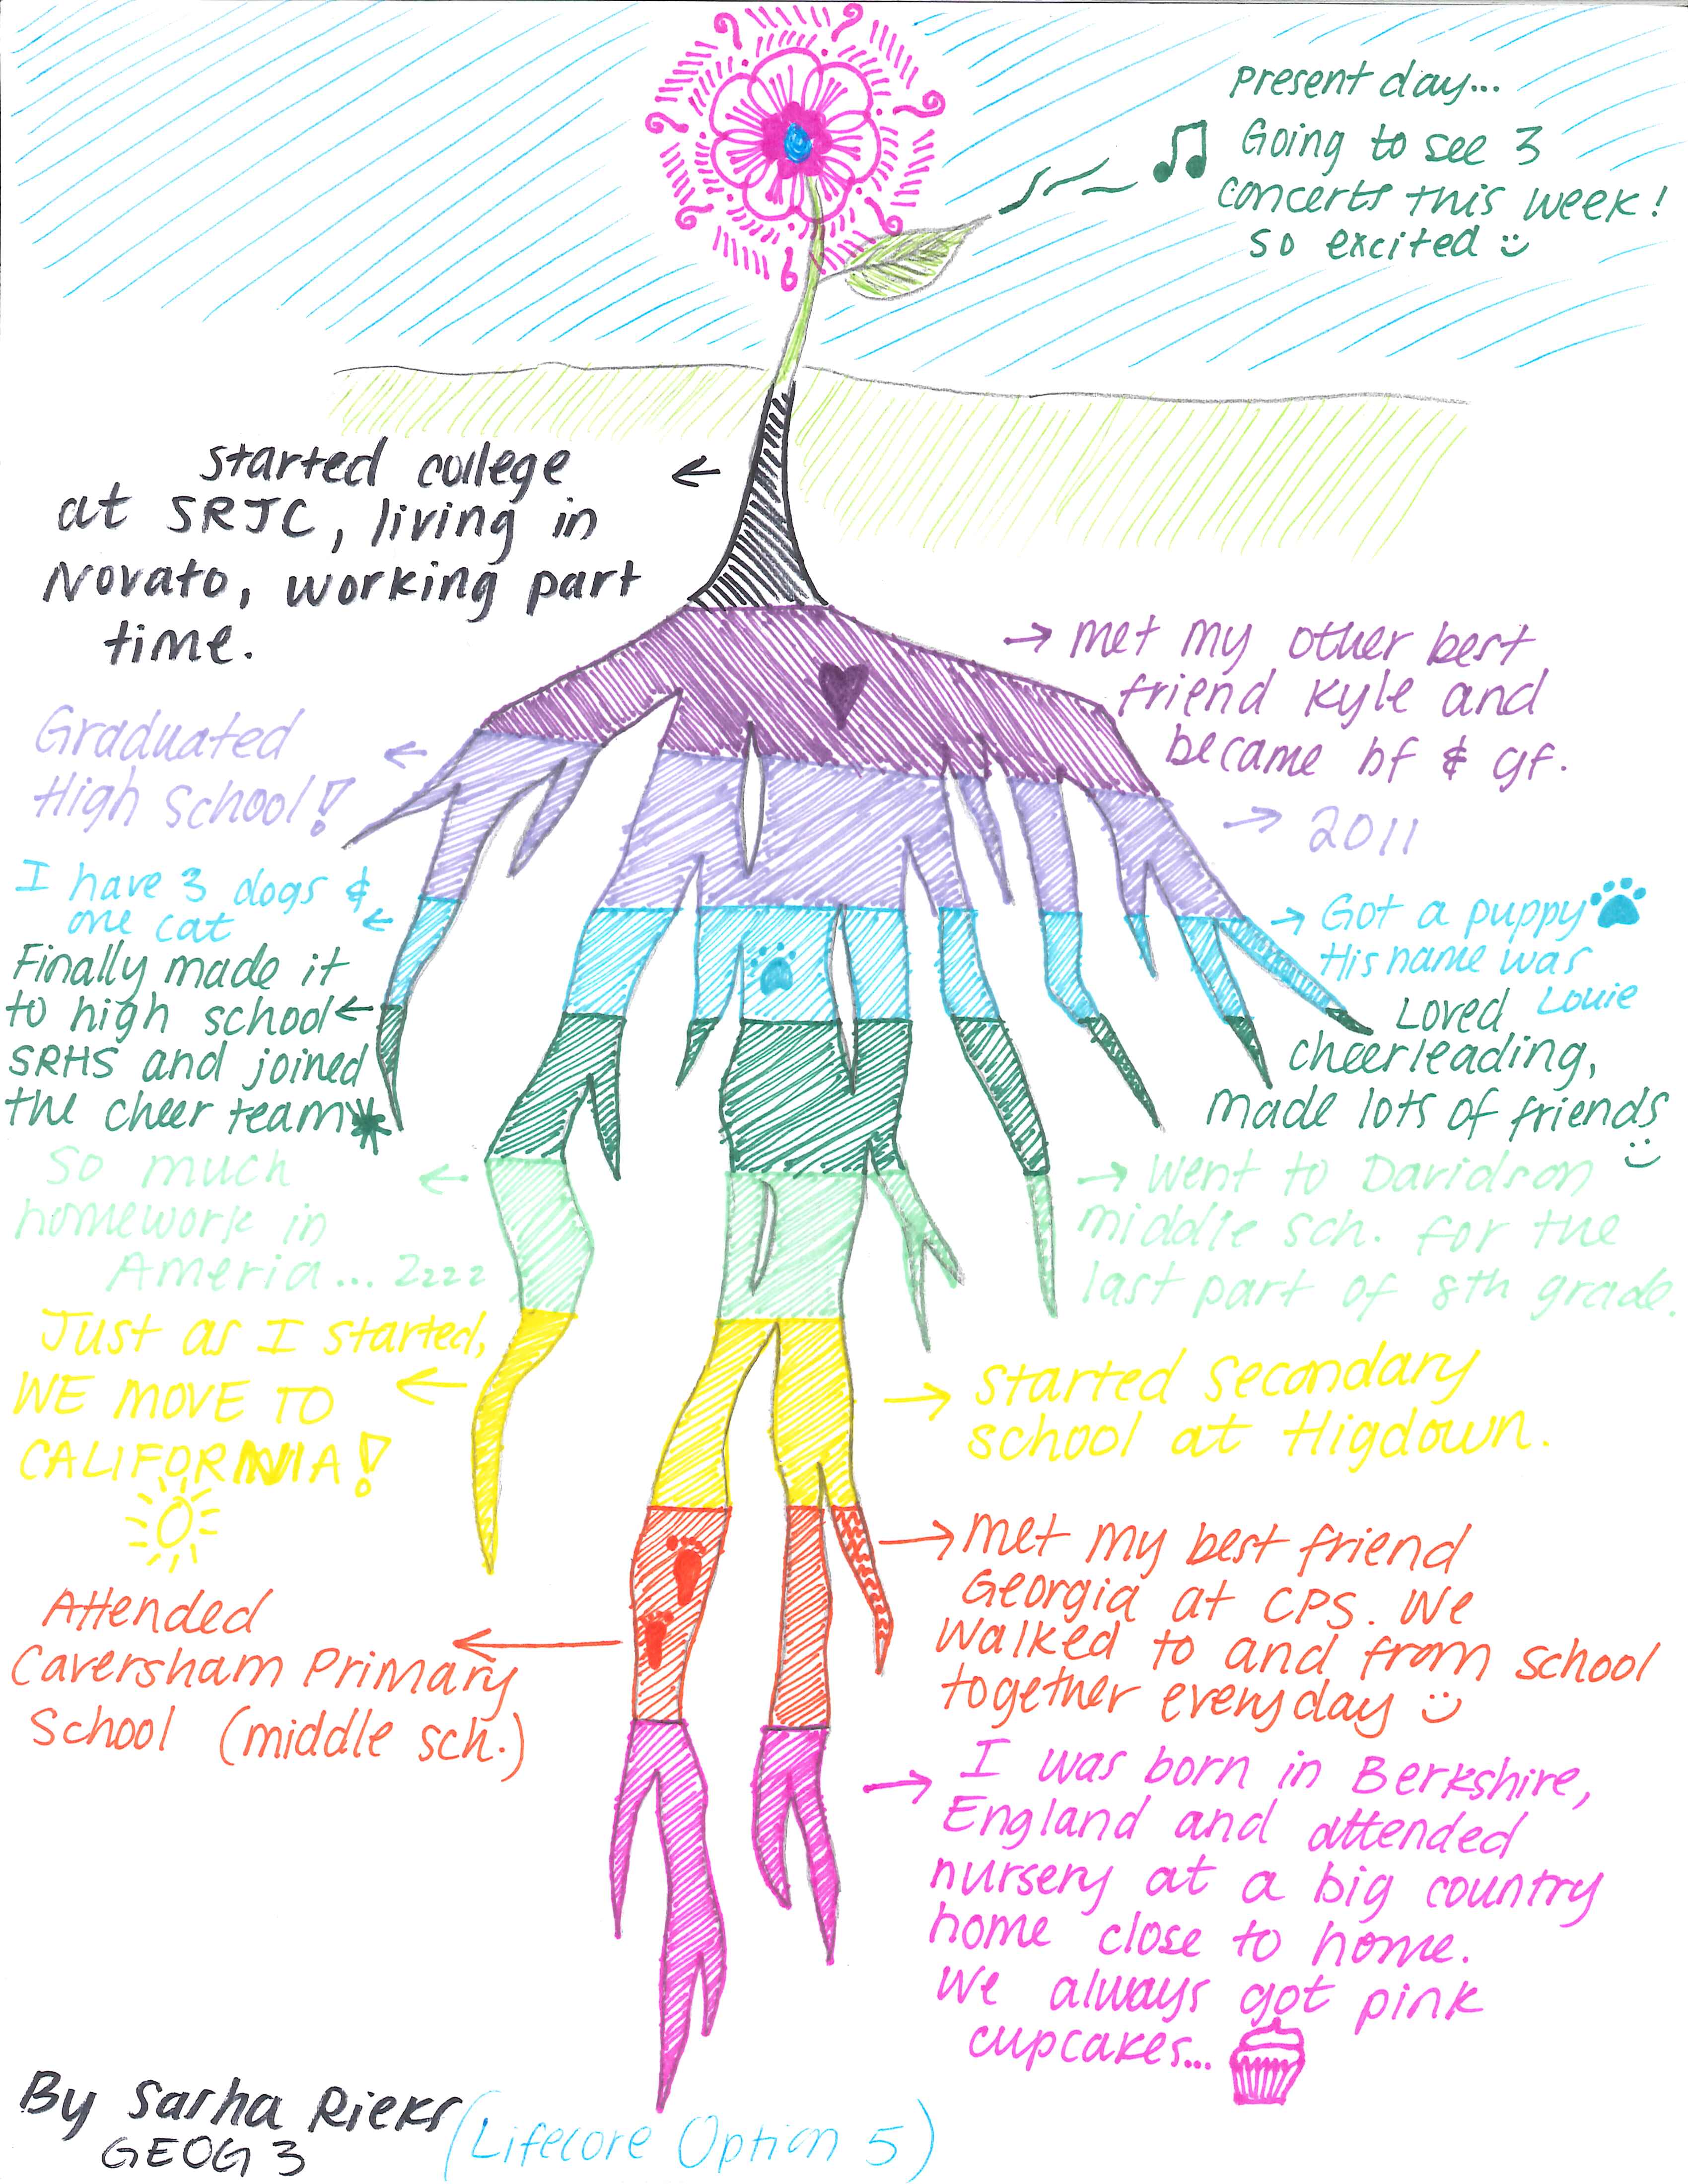 present day...
Going to see 3
concerts this week!
so excited
started college
at SRJC, living in
Novato, working part
time.
met my other best
friend Kyle and
became bf & gf.
Graduated
High School!
2011
I have 3 dogs &
one cat
Got a puppy
His name was
Louie
Finally made it
to high school
SRHS and joined
the cheer team
Loved
cheerleading,
made lots of friends
So much
homework in
Ameria... Zzzz
Went to Davidson
middle sch. for the
last part of 8th grade.
Just as I started,
WE MOVE TO
CALIFORNIA!
Started Secondary
school at Higdown.
Attended
Caversham Primary
School (middle sch.)
met my best friend
Georgia at CPS. We
walked to and from school
together everyday
I was born in Berkshire,
England and attended
nursery at a big country
home close to home.
We always got pink
cupcakes...
By Sasha Rieks
GEOG 3
(Lifecore Option 5)